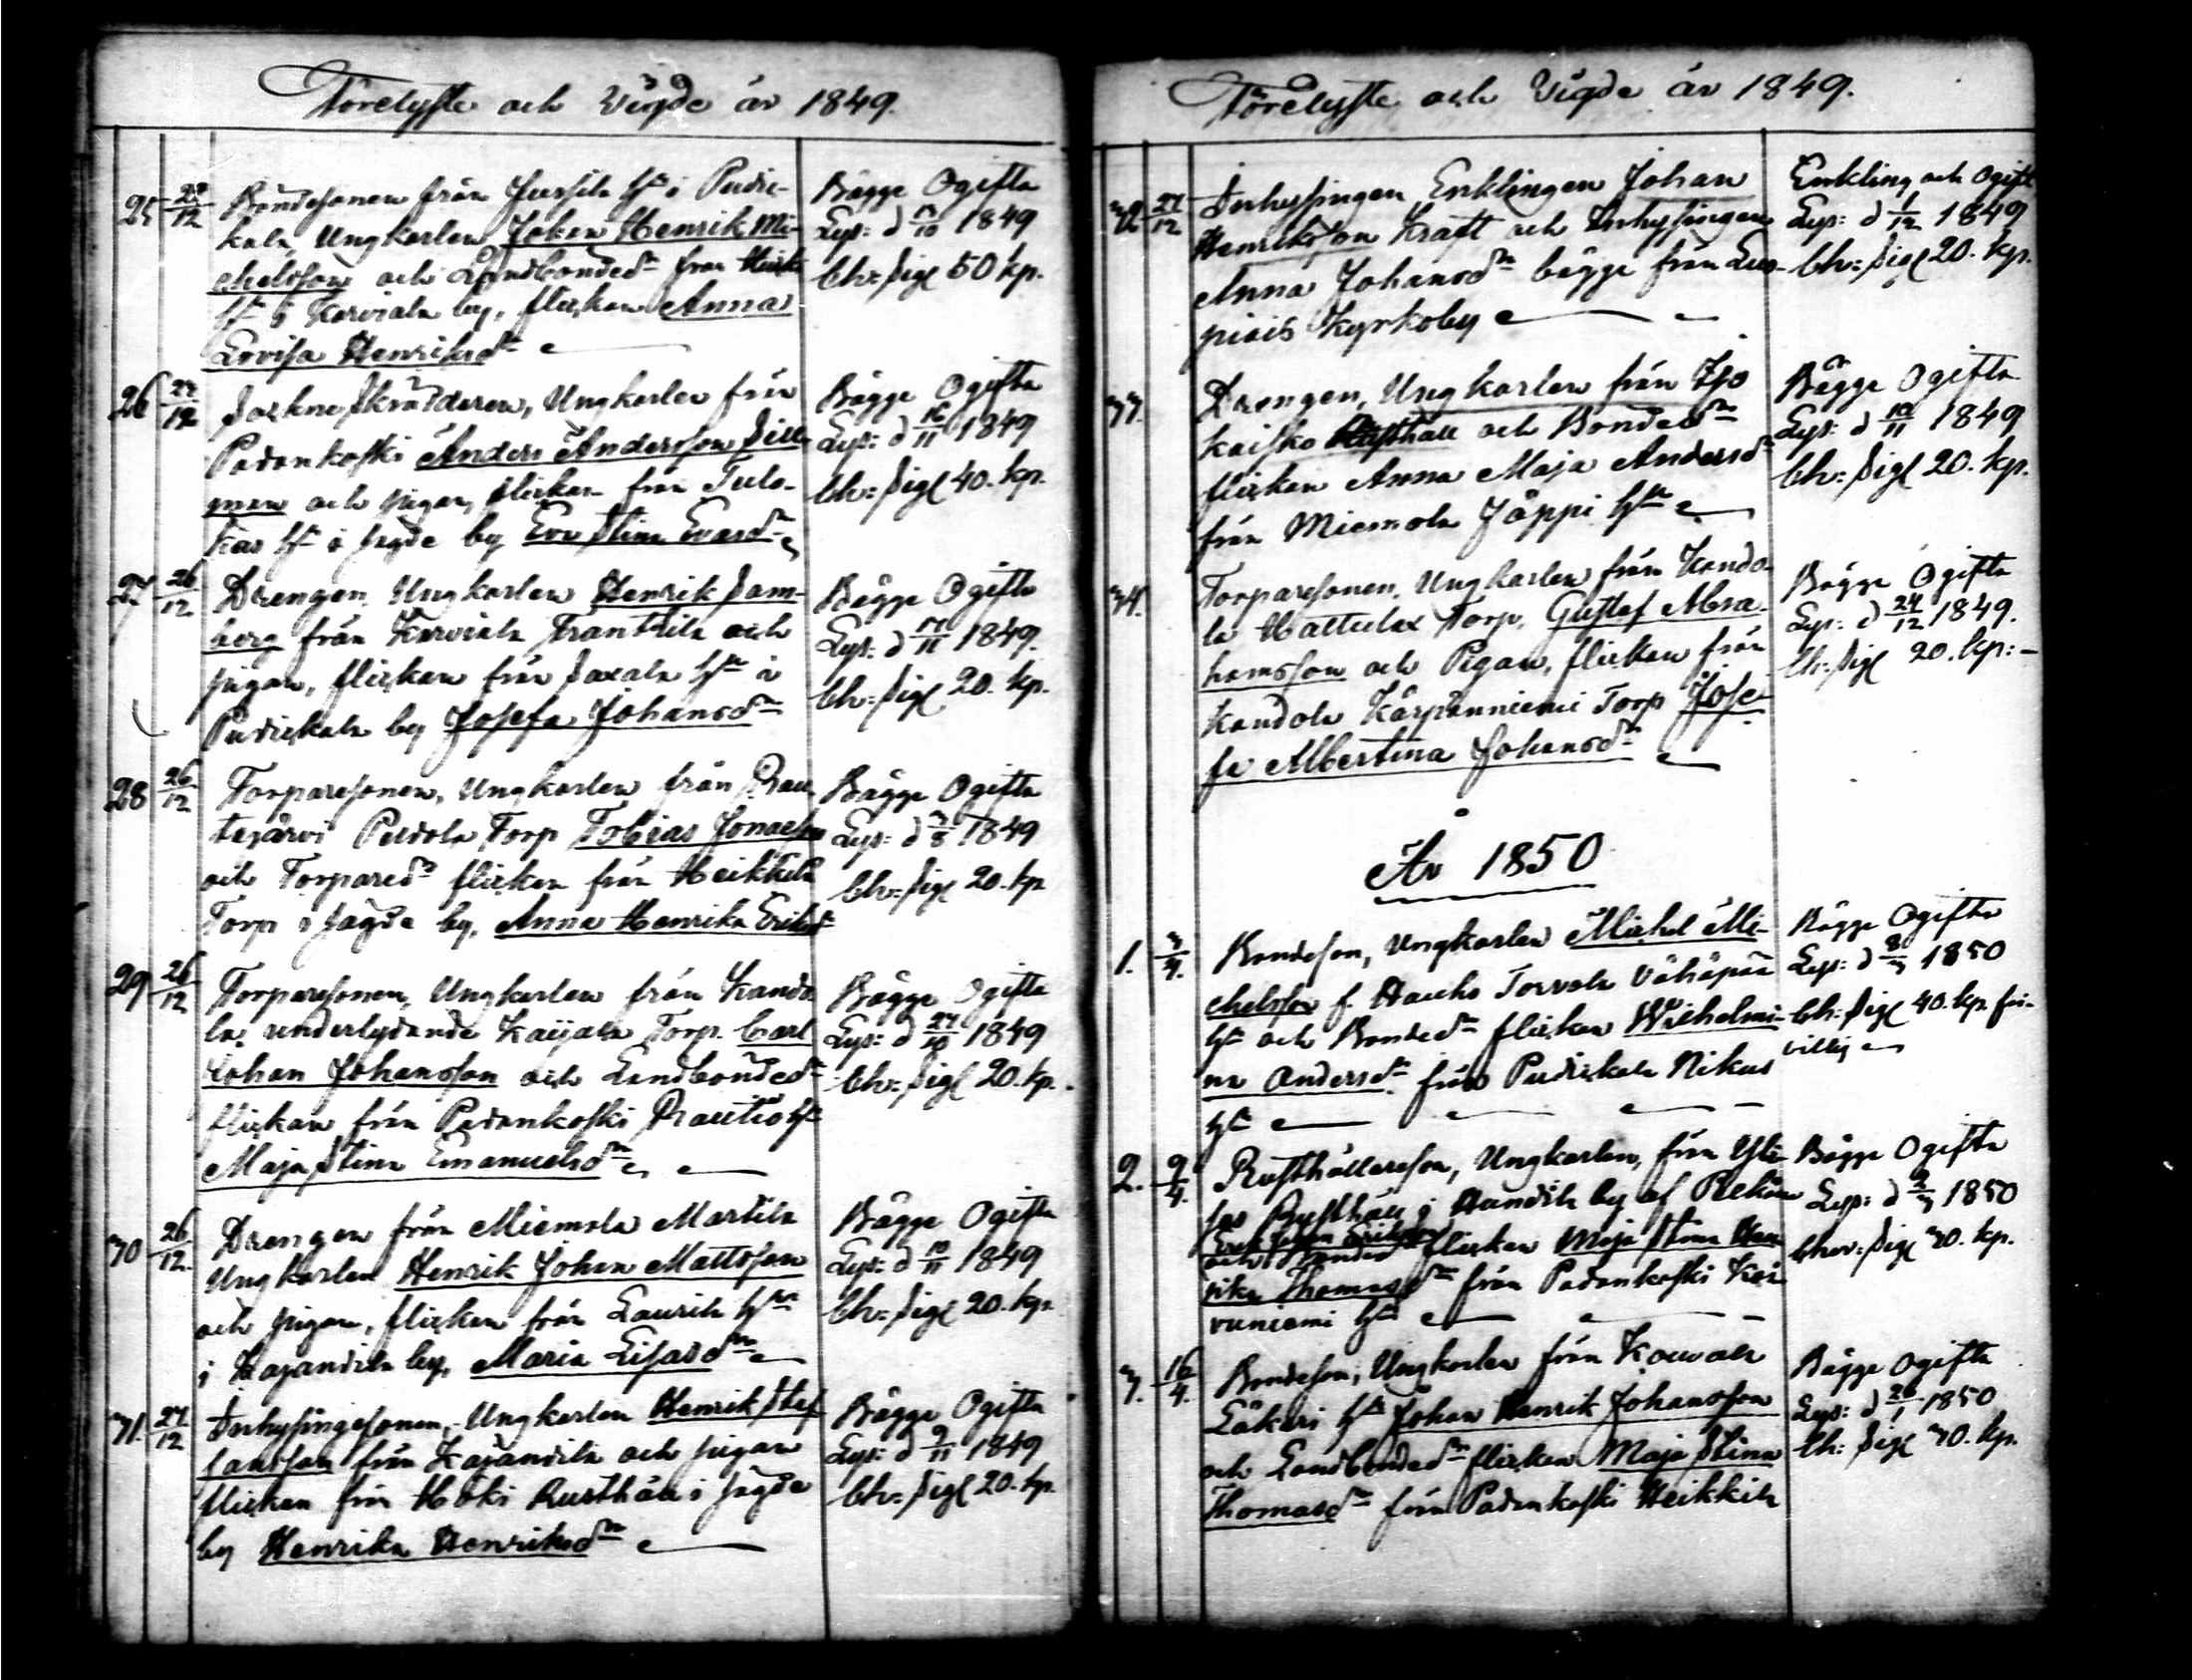 Förelyste och Vigde år 1849.
25 12 Bondesonen från Jussila Hn i Pudic-
kala, Ungkarlen Johan Henrik Mi-
chelsson och Landbondedn från Heikki
Hn i Karviala by, flickan Anna
Lovisa Henriksdn
Bägge Ogifta
Lys: d 1849
Ch: Sigl 50 kp.
26 27/12 Sockneskräddaren, Ungkarlen från
Padankoski Anders Andersson Sill-
man och pigan, flickan från Tulo-
kas Hn i Sagde by Eva Stina Evasdn
Bägge Ogifta
Lys: d 1849
Ch: Sigl 40. kp.
27 26/12 Drengen, Ungkarlen Henrik Sam-
berg från Karviala Franttila och
pigan, flickan från Saxala Hn i
Pudickala by Josefa Johansdn
Bägge Ogifta
Lys: d 1849.
Ch: Sigl 20. kp.
28 26/12 Torparesonen, Ungkarlen från Rau
tajärvi Peldola Torp Tobias Jonaesson
och Torparedn flickan från Heikkilä
Torp i Sagde by, Anna Henrika Eriksdn
Bägge Ogifta
Lys: d 3/8 1849
Ch: Sigl 20. kp
29 26/12 Torparesonen, Ungkarlen från Kando
la underlydande Kaijala Torp. Carl
Johan Johansson och Landbondedn
flickan från Padankoski Rautio Hn
Maja Stina Emanuelsdn
Bägge Ogifta
Lys: d 27/10 1849
Ch: Sigl 20. kp.
30 26/12. Drengen från Miemola Martila
Ungkarlen Henrik Johan Mattsson
och pigan, flickan från Laurila Hn
i Kajandila by, Maria Lisasdn
Bägge Ogifta
Lys: d 10/11 1849
Ch: Sigl 20. kp.
31. 27/12 Inhysingesonen, Ungkarlen Henrik Stef
fansson från Kajandila och pigan
flickan från Höki Rusthåll i Sagde
by Henrika Henriksdn
Bägge Ogifta
Lys: d 9/11 1849
Ch: Sigl 20. kp.
Förelyste och Vigde år 1849.
32 27/12 Inhysingen, Enklingen Johan
Henriksson Kraft och Inhysingen
Anna Johansdn bägge från Luo-
piois Kyrkoby
Enkling och Ogift
Lys: d 1/12 1849
Ch: Sigl 20. kp.
33. Drengen, Ungkarlen från Ijo
kaisko Rusthåll och Bondedn
flickan Anna Maja Andersdn
från Miemola Jåppi Hn
Bägge Ogifta
Lys: d 10/11 1849
Ch: Sigl 20. kp.
34. Torparesonen, Ungkarlen från Kando-
la Hattulax Torp, Gustaf Abra-
hamsson och Pigan, flickan från
Kandola Kärpänniemi Torp Jose-
fa Albertina Johansdn
Bägge Ogifta
Lys: d 24/12 1849.
Ch: Sigl 20. kp:
År 1850
1. 3/4. Bondeson, Ungkarlen Michel Mi-
chelsson f. Hauho Torvola Vähäpää
Hn och Bondedn flickan Wilhelmi-
na Andersdn från Pudickala Nikus
Hn
Bägge Ogifta
Lys: d 8/3 1850
Ch: Sigl 40. kp. fri-
villig
2. 9/4. Rusthållareson, Ungkarlen, från Yli-
Rusthåll i Haudila by af Pelkäne
Erik Johan Eriksson
och Bondedn flickan Maja Stina Hen
rika Thomasdn från Padankoski Kai
runiemi Hn
Bägge Ogifta
Lys: d 2/3 1850
Cher: Sigl 30. kp.
3. 16/4. Bondeson, Ungkarlen från Kouvala
Läkari Hn Johan Henrik Johansson
och Landbondedn flickan Maja Stina
Thomasdn från Padankoski Heikkilä
Bägge Ogifta
Lys: d 26/1 1850
Ch: Sigl 30. kp.